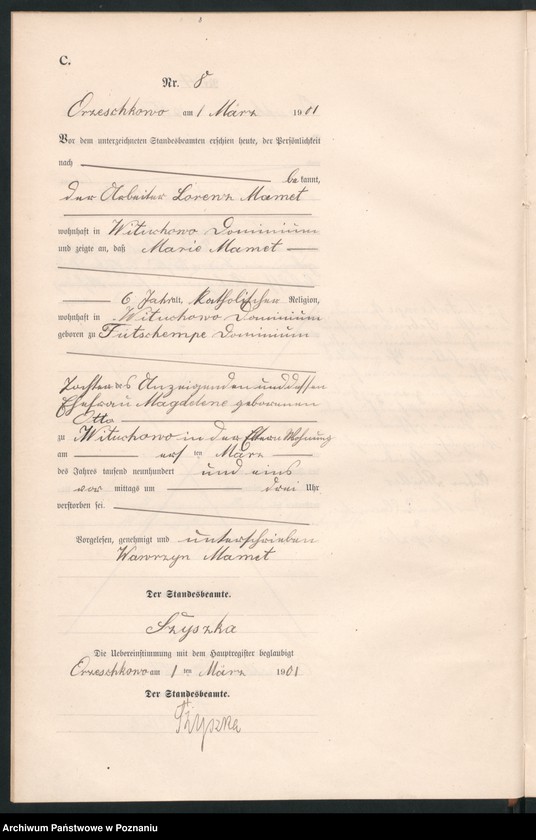 C.
Nr. 8
Orzeschkowo am 1 März 1901
Vor dem unterzeichneten Standesbeamten erschien heute, der Persönlichkeit
nach
bekannt,
der Arbeiter Lorenz Mamet
wohnhaft in Wituchowo Dominium
und zeigte an, daß Marie Mamet
6 Jahr alt, katholischer Religion,
wohnhaft in Wituchowo Dominium
geboren zu Tutschempe Dominium
Tochter des Anzeigenden und dessen
Ehefrau Magdalene geborenen
Otto
zu Wituchowo in der Eltern Wohnung
am ersten März
des Jahres tausend neunhundert und eins
vor mittags um drei Uhr
verstorben sei.
Vorgelesen, genehmigt und unterschrieben
Wawrzyn Mamet
Der Standesbeamte.
Szyszka
Die Uebereinstimmung mit dem Hauptregister beglaubigt
Orzeschkowo am 1 ten März 1901
Der Standesbeamte.
Szyszka
Archiwum Państwowe w Poznaniu